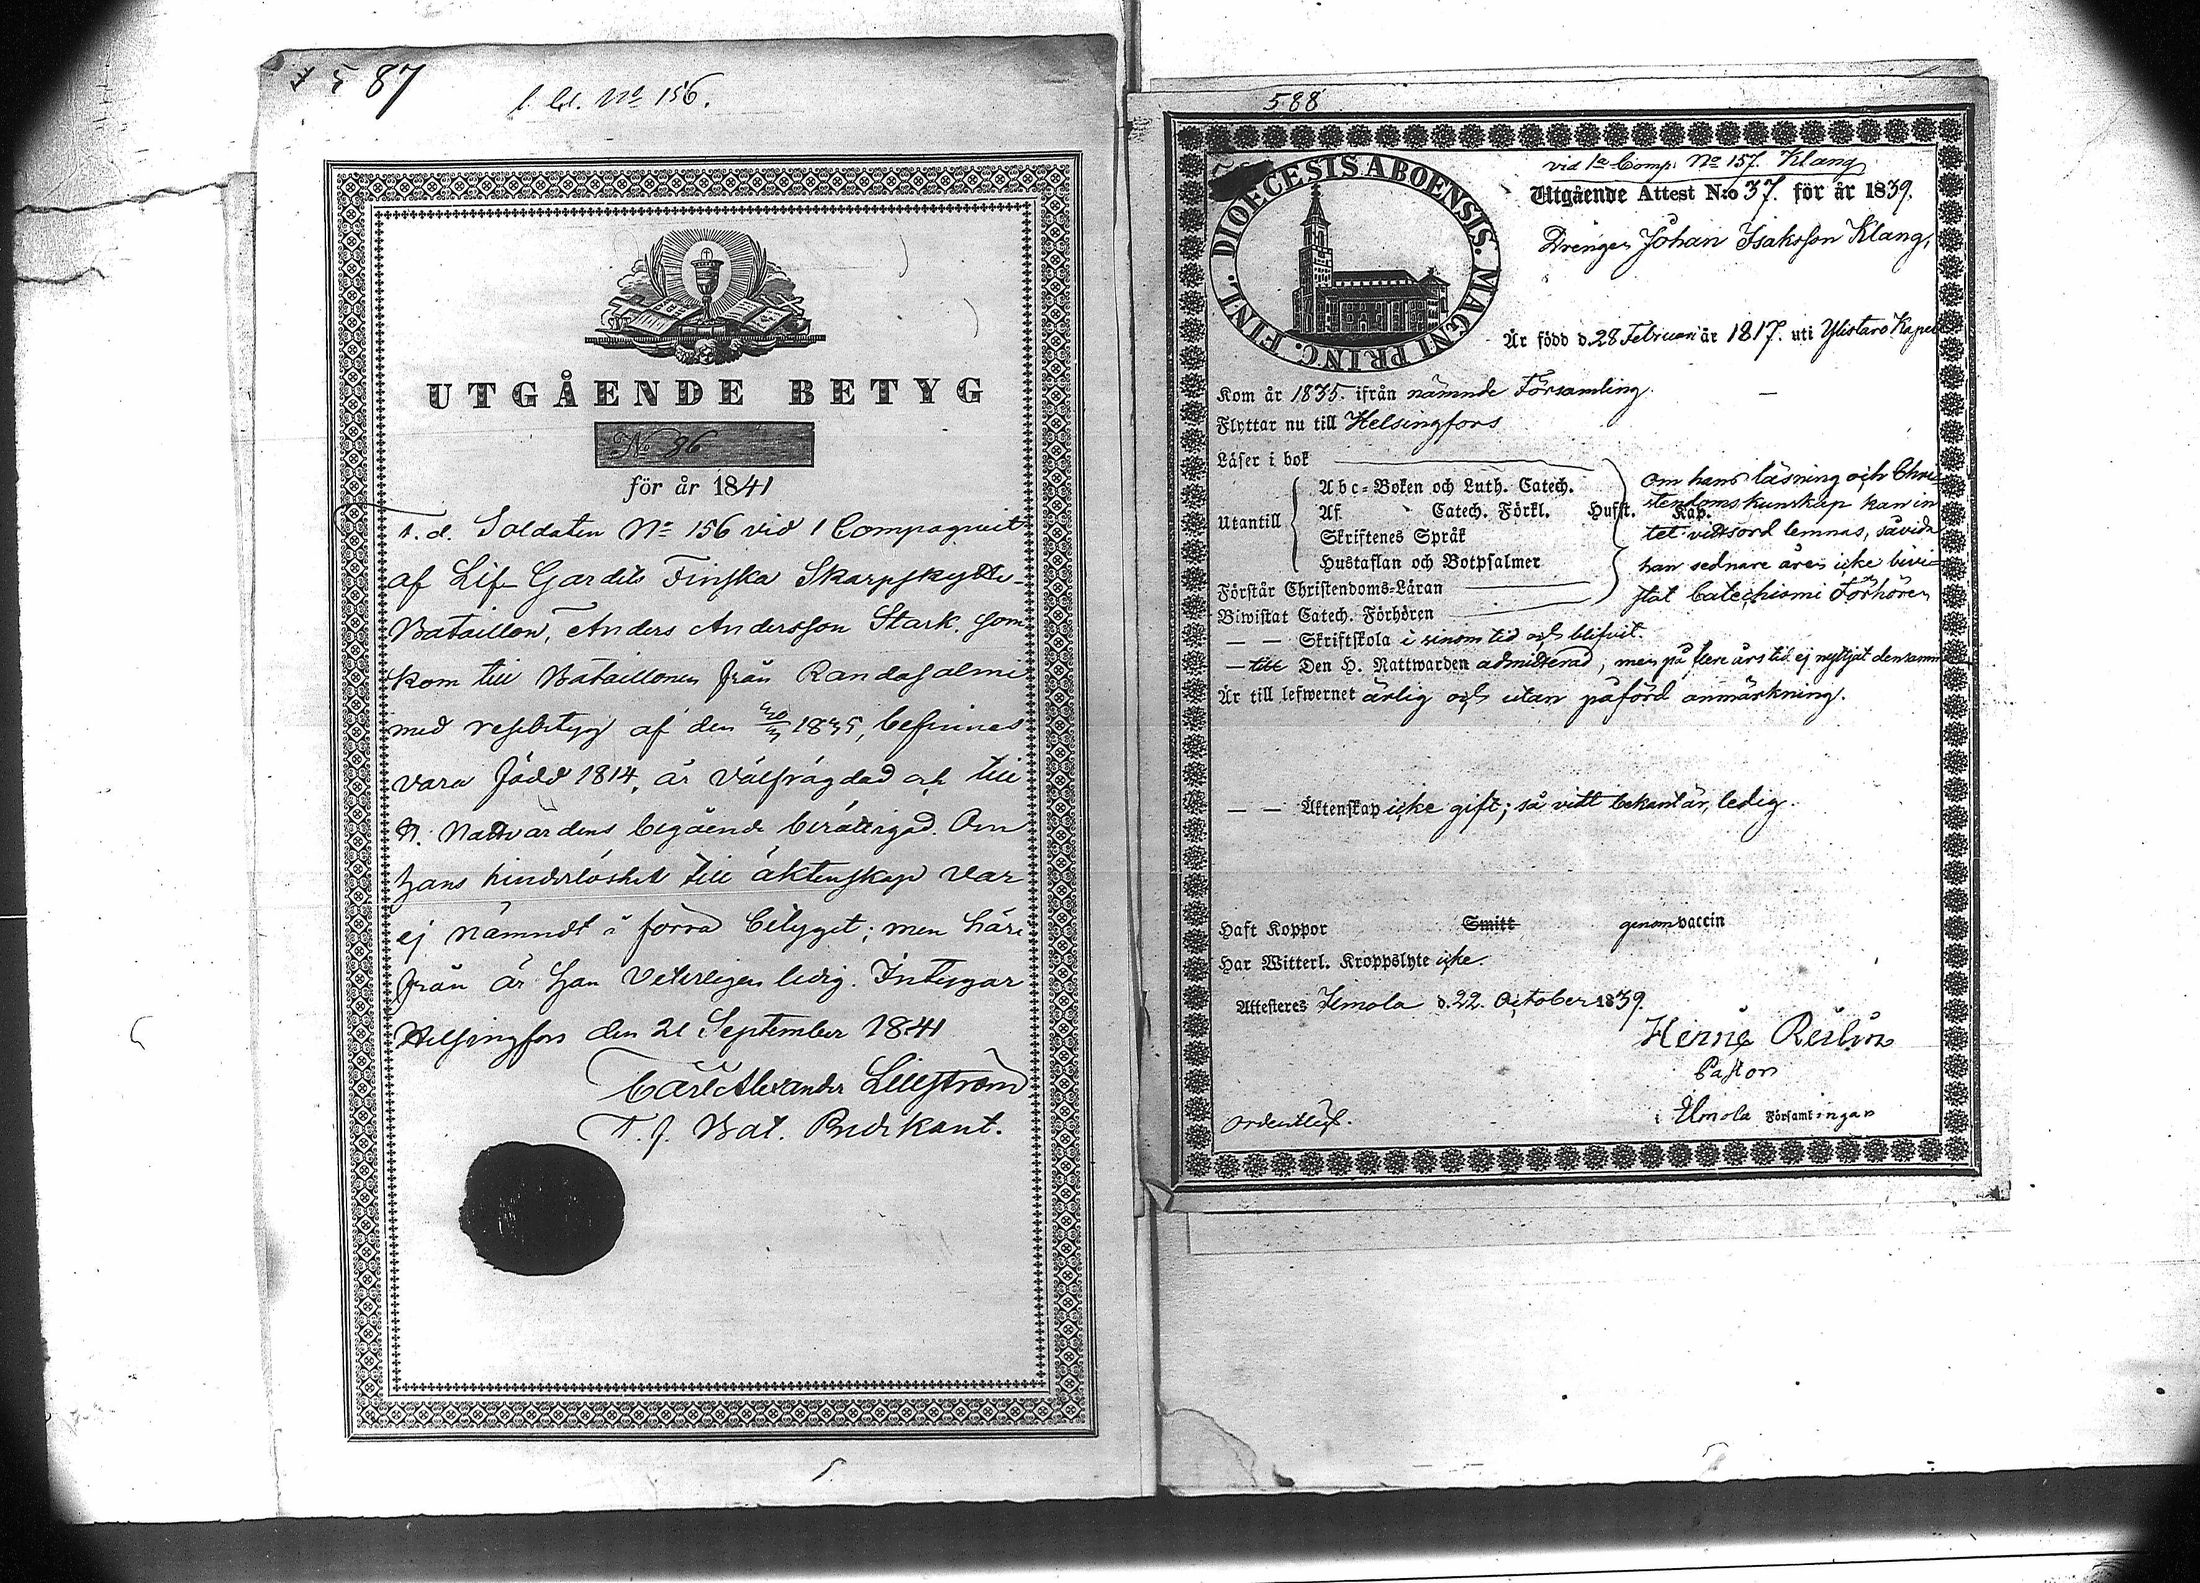 587
N:o 156.
UTGÅENDE BETYG
No 86
för år 1841
f. d. Soldaten No 156 vid 1 Compagniet
af Lif-Gardets Finska Skarpskytte-
Bataillon, Anders Andersson Stark, som
kom till Bataillonen från Randasalmi
med resebetyg af den 1835, befinnes
vara född 1814, är välfrägdad och till
H. Nattvardens begående berättigad. Om
hans hinderlöshet till äktenskap var
ej nämndt i förra betyget; men häri-
från är han veterligen ledig. Intygar
Helsingfors den 21 September 1841
Carl Alexander Lillström
T. f. Bat. Predikant.
588
vid 1a Comp. No 157. Klang
DIOECESIS ABOENSIS. MAGNI PRINC. FINL.
Utgående Attest N:o 37. för år 1839.
Drengen Johan Isaksson Klang,
Är född d. 28 Februari år 1817. uti Ylistaro Kapell
Kom år 1835. ifrån nämnde Församling.
Flyttar nu till Helsingfors
Läser i bok
Utantill
Abc-Boken och Luth. Catech.
Af Catech. Förkl. Hufst. Kap.
Skriftenes Språk
Hustaflan och Botpsalmer
Förstår Christendoms-Läran
Biwistat Catech. Förhören
om hans läsning och Chri-
stendoms kunskap kan in
tet vittsord lemnas, såvida
han sednare åren icke bivi-
stat Catechismi Förhören
— — Skriftskola i sinom tid och blifvit.
— till Den H. Nattwarden admitterad, men på flere års tid ej nyttjat densamma
Är till lefwernet ärlig och utan påförd anmärkning.
— — Äktenskap icke gift; så vidt bekant är, ledig.
Haft Koppor Smitt genom vaccin
Har Witterl. Kroppslyte icke.
Attesteres Ilmola d. 22. October 1839.
Pastor
i Ilmola Församlingar